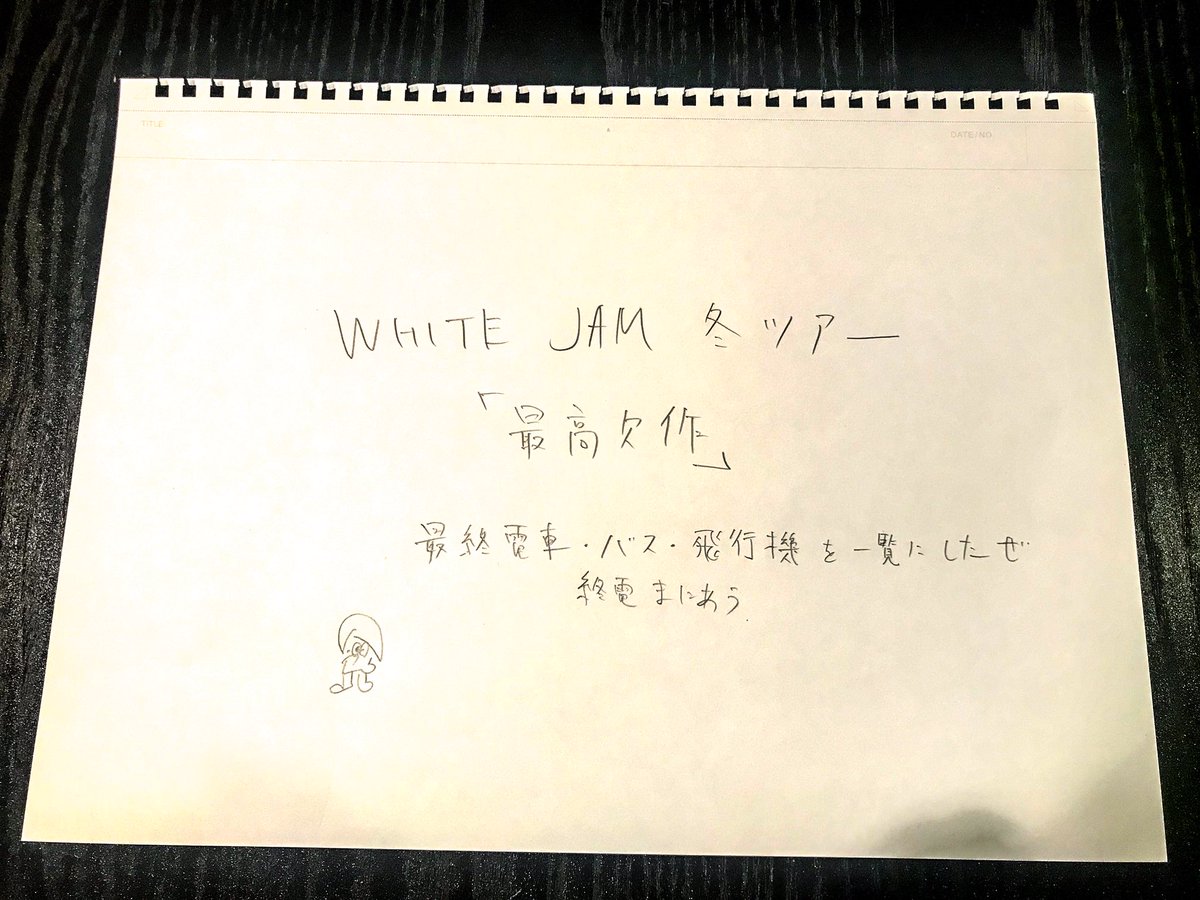 TITLE
DATE/NO
WHITE JAM 冬ツアー
「最高欠作」
最終電車・バス・飛行機を一覧にしたぜ
終電まにあう